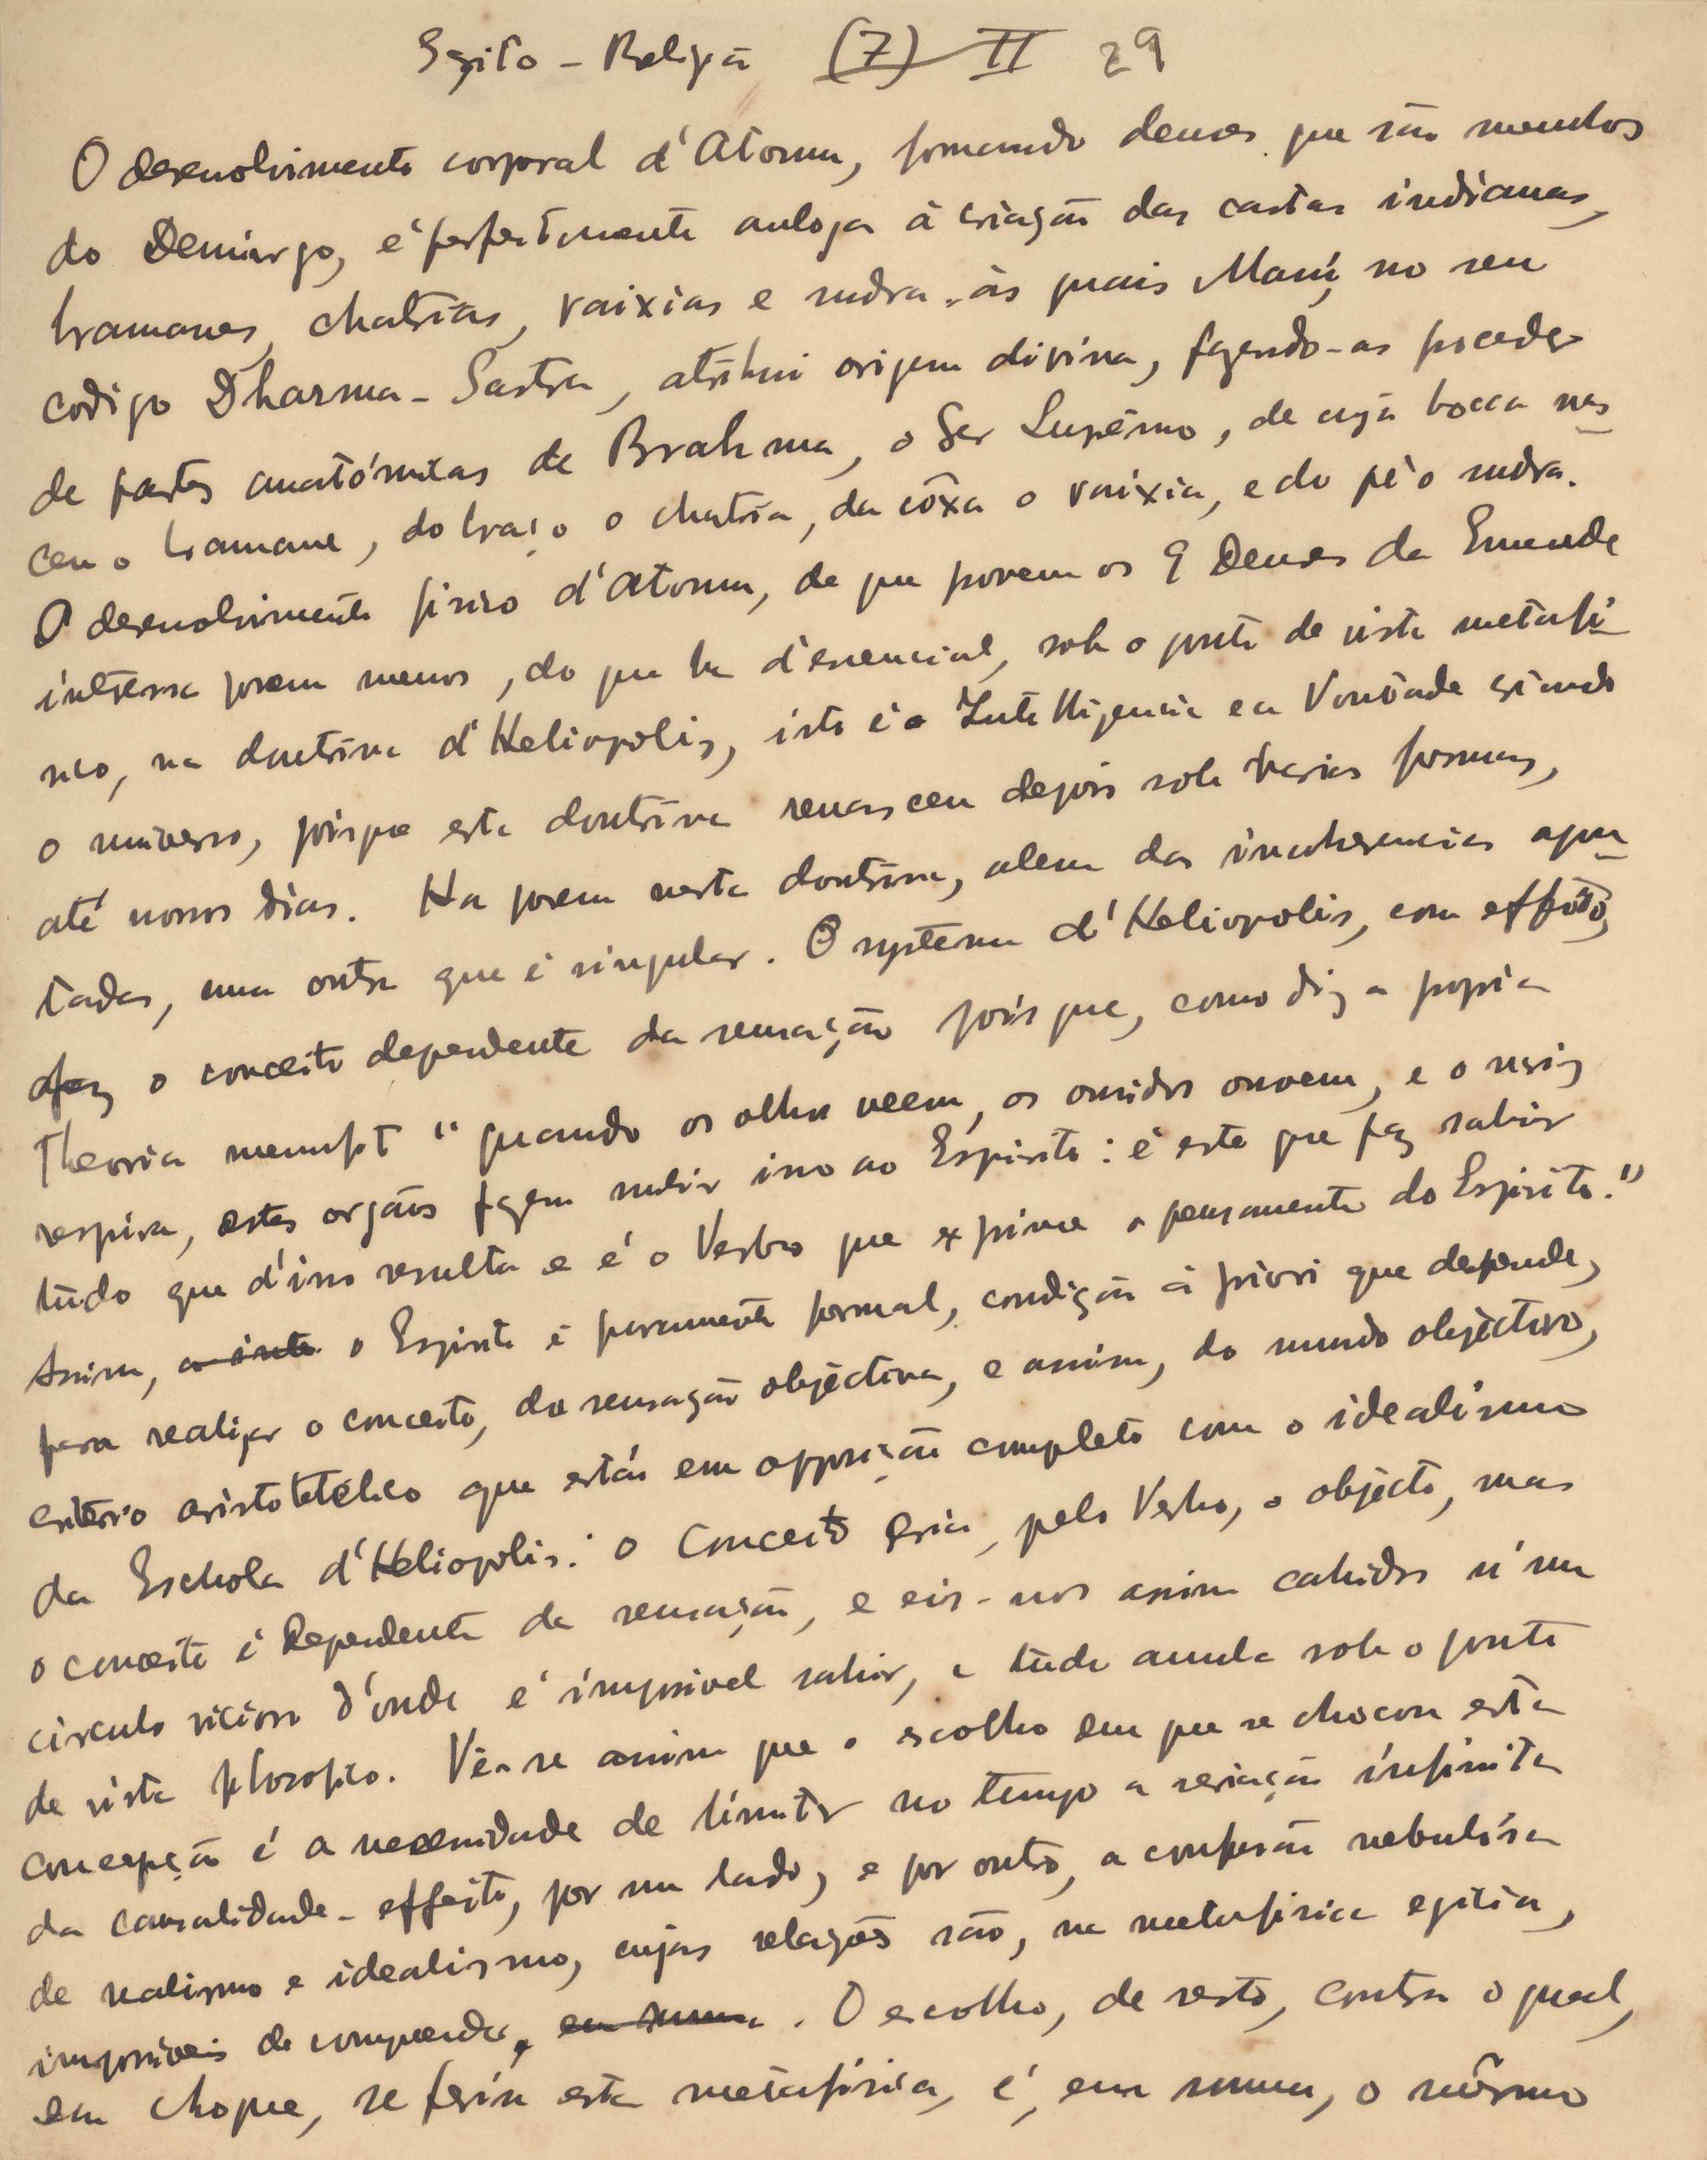 Egito - Religião (7) II 29
O desenvolvimento corporal d'Atoum, formando deuses que são membros
do Demiurgo, é perfeitamente analoga á criação das castas indianas,
bramanes, chatrias, vaixias e sudra, ás quais Manú, no seu
codigo Dharma-Sastra, atribui origem divina, fazendo-as proceder
de partes anatómicas de Brahma, o Ser Suprêmo, de cuja bocca nas
ceu o bramane, do braço o chatria, da côxa o vaixia, e do pé o sudra.
O desenvolvimento fisico d'Atoum, de que provem os 9 Deuses da Enneade
interessa porem menos, do que ha d'essencial, sob o ponto de vista metafi
sico, na doutrina d'Heliopolis, isto é a Intelligencia e a Vontade criando
o universo, pois que esta doutrina renasceu depois sob varias formas,
até nossos dias. Ha porem nesta doutrina, alem das incoherencias apon
tadas, uma outra que é singular. O systema d'Heliopolis, com effeito,
faz o conceito dependente da sensação pois que, como diz a propria
Theoria memfit "quando os olhos veem, os ouvidos ouvem, e o nariz
respira, estes orgãos fazem subir isso ao Espirito: é este que faz sahir
tudo que d'isso resulta e é o Verbo que exprime o pensamento do Espirito."
Assim, o Espirito é puramente formal, condição á priori que depende,
para realizar o conceito, da sensação objectiva, e assim, do mundo objectivo,
criterio aristotélico que está em opposição completa com o idealismo
da Eschola d'Heliopolis: o Conceito cria, pelo Verbo, o objecto, mas
o conceito é dependente da sensação, e eis-nos assim cahidos n'um
circulo vicioso d'onde é impossivel sahir, e tudo annula sob o ponto
de vista filosofico. Vê-se assim que o escolho em que se chocou esta
concepção é a necessidade de limitar no tempo a seriação infinita
da causalidade-effeito, por um lado, e por outro, a confusão nebulósa
de realismo e idealismo, cujas relações são, na metafisica egitia,
impossiveis de comprender. O escolho, de resto, contra o qual,
em choque, se feriu esta metafisica, é, em summa, o mêsmo